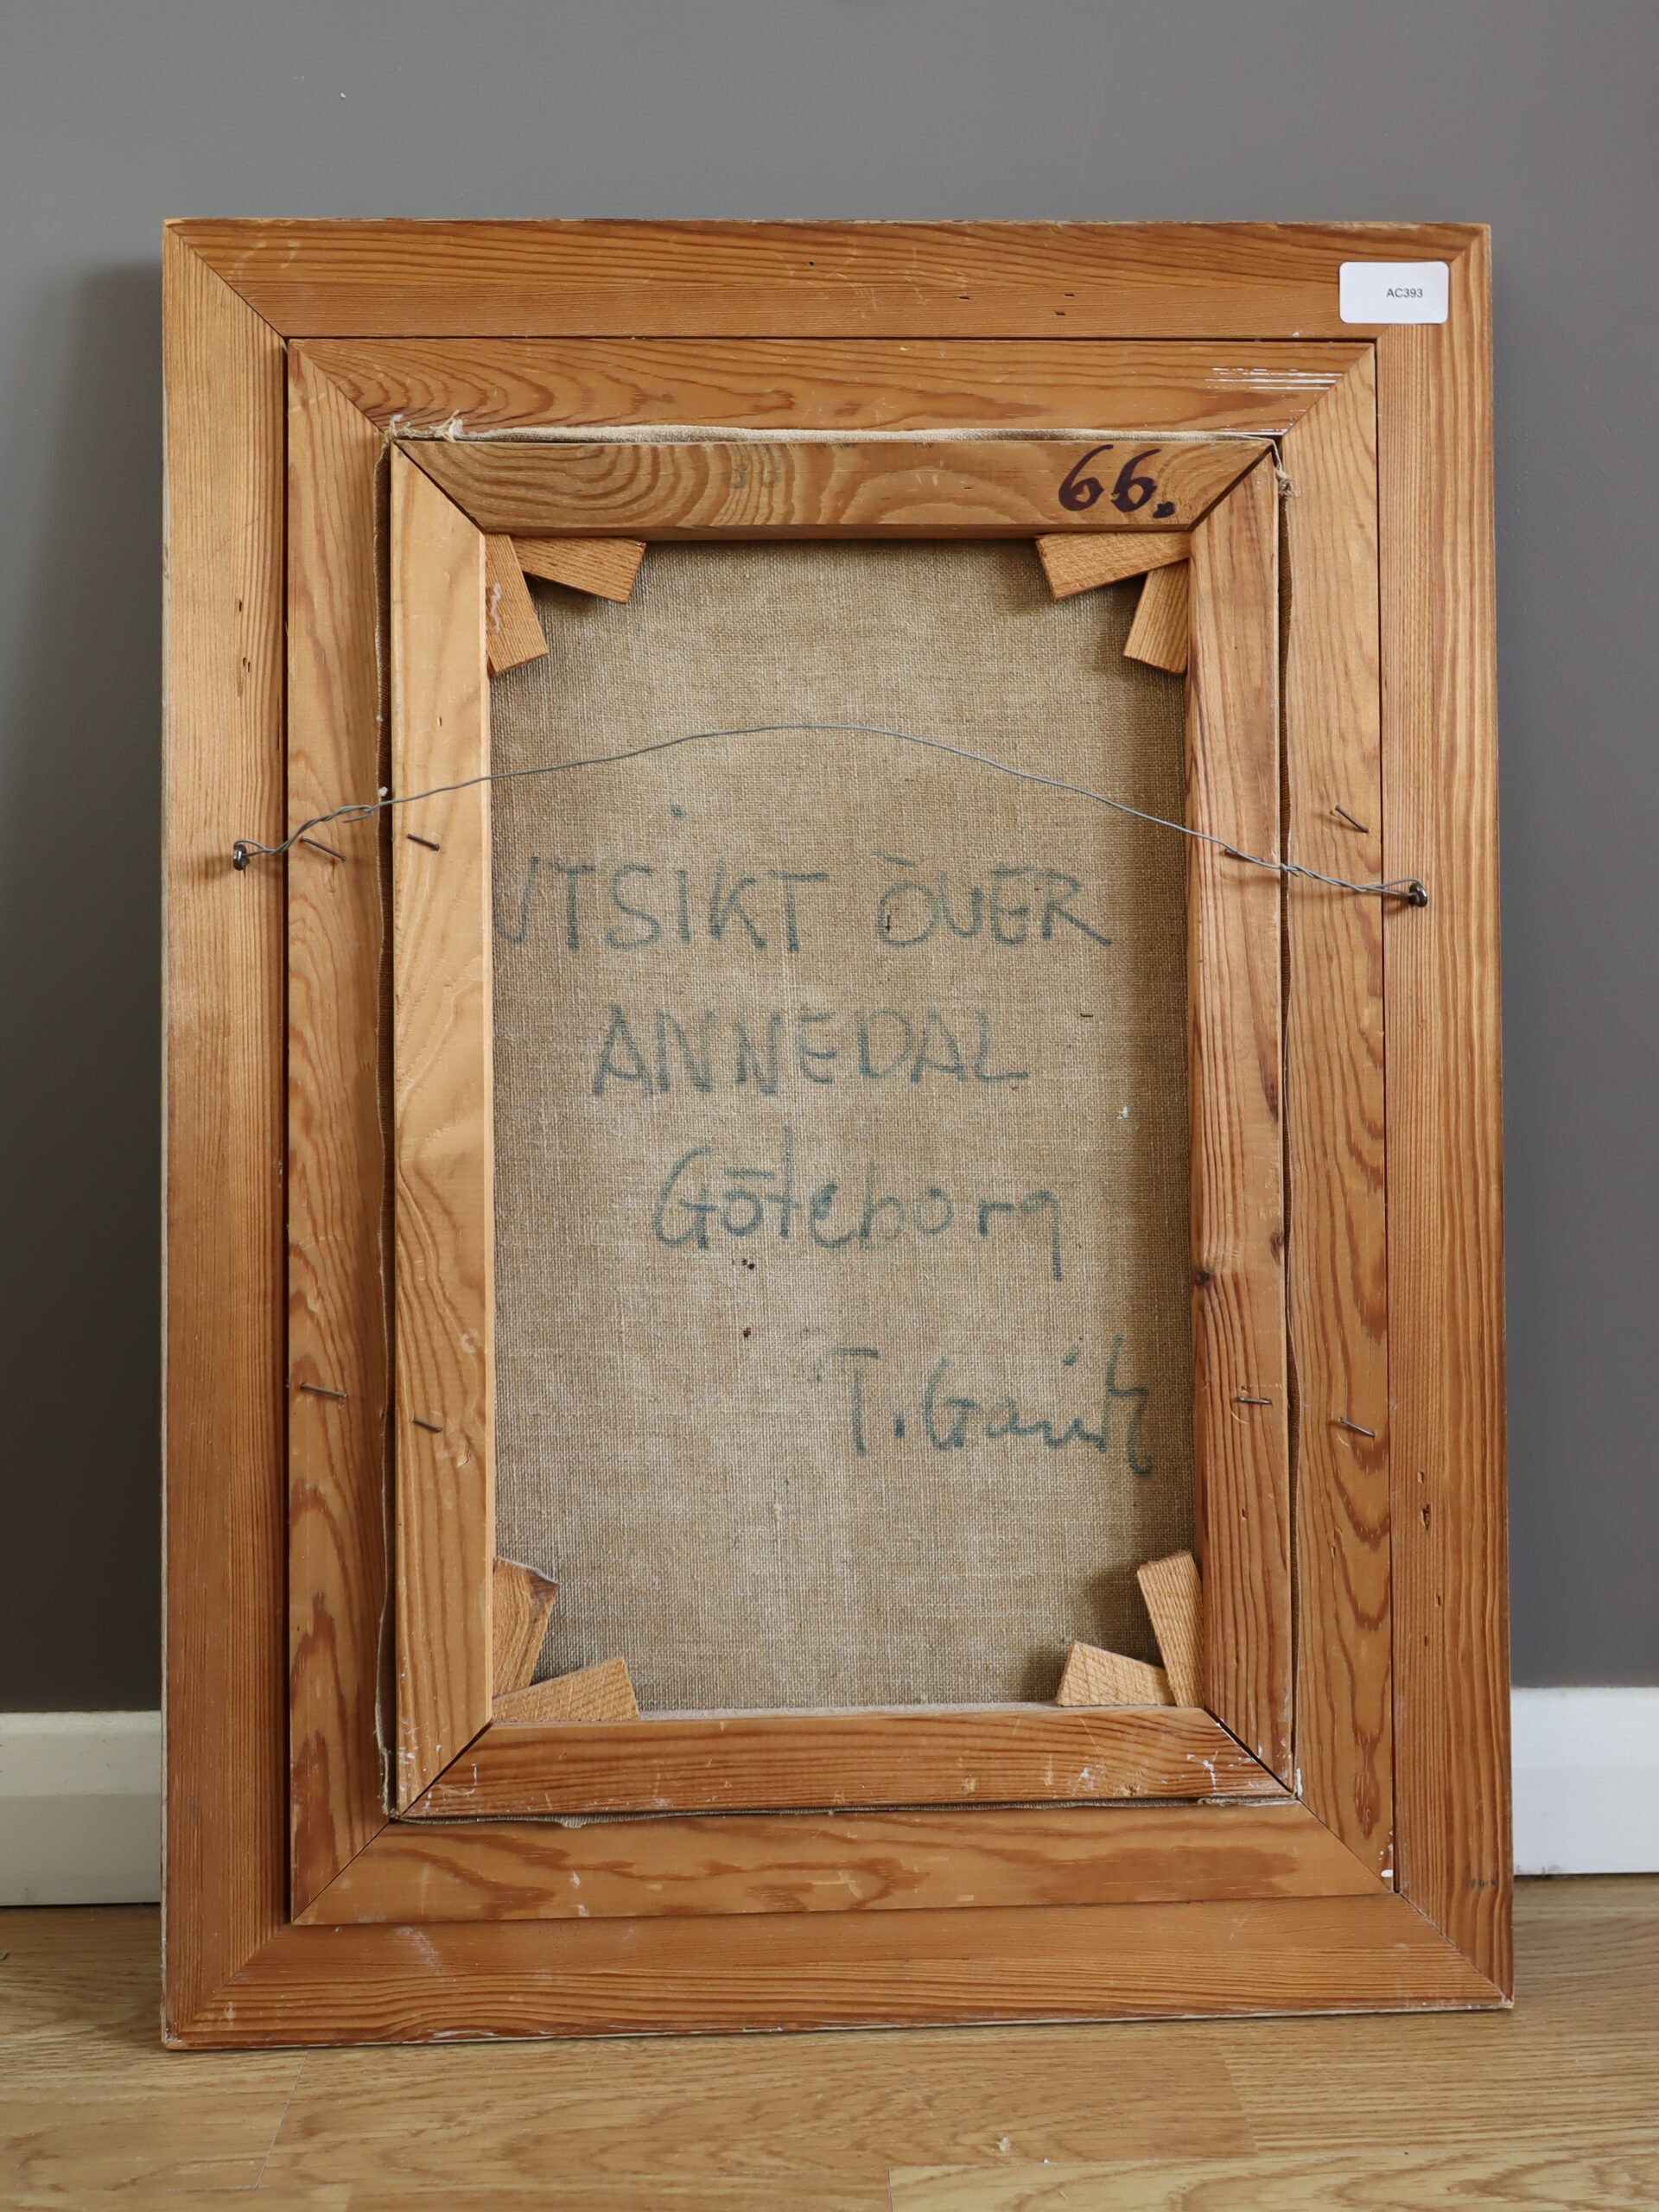 AC393
66.
UTSIKT ÖVER
ANNEDAL
Göteborg
T.